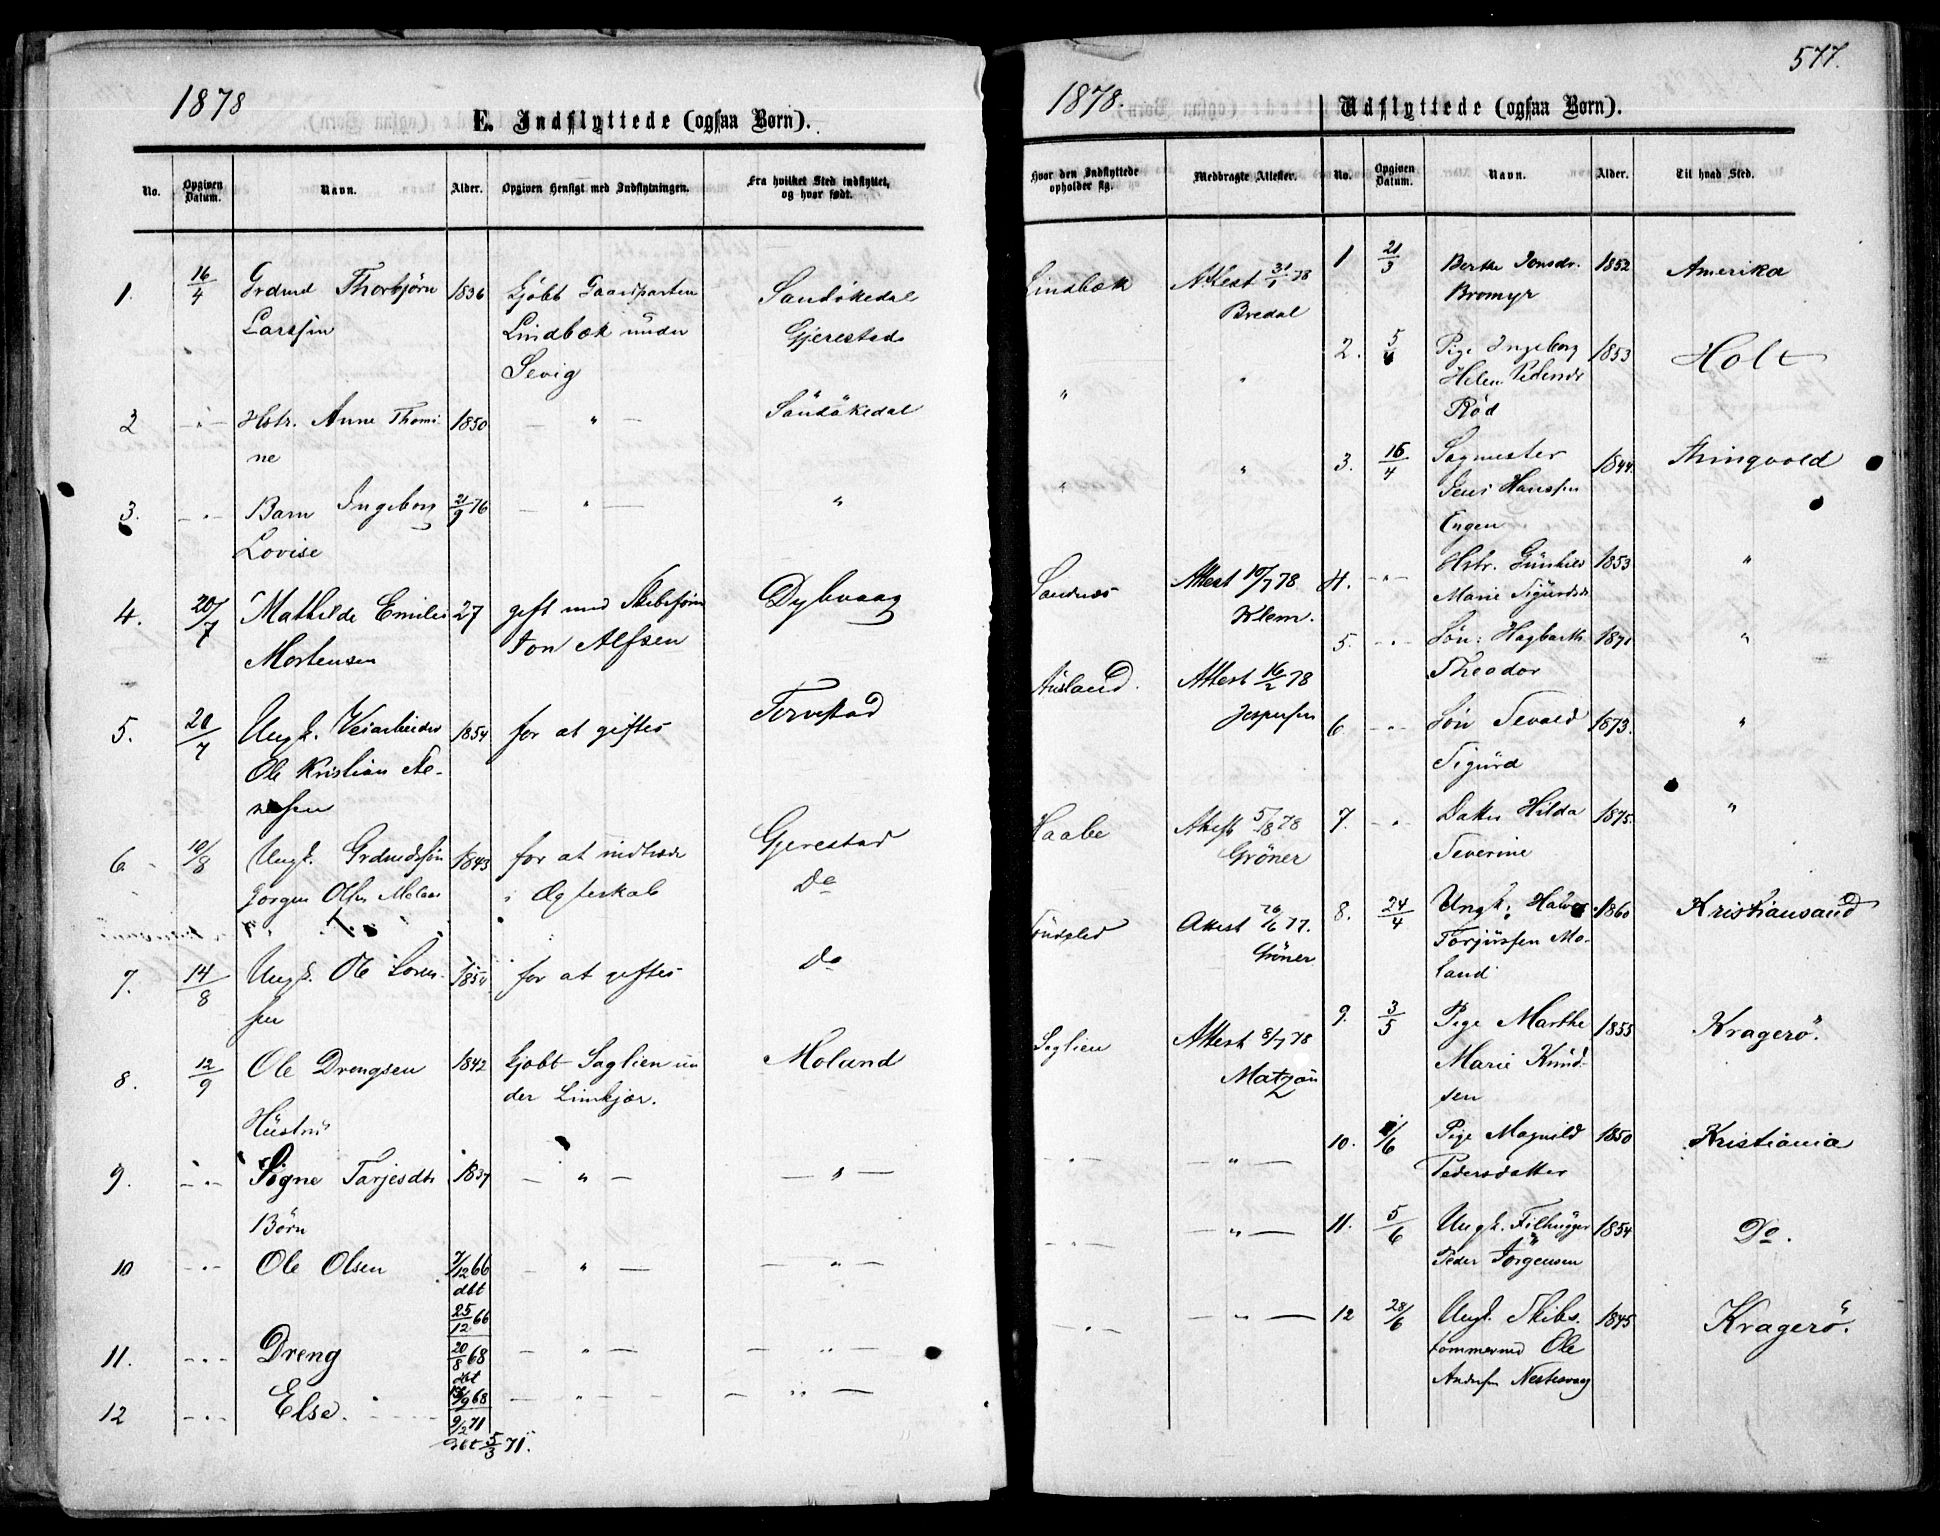 1878
E. Indflyttede (ogsaa Børn).
No.
Opgiven Datum.
Navn.
Alder.
Opgiven Hensigt med Indflytningen.
Fra hvilket Sted indflyttet, og hvor født.
1. 16/4 Grdmd Thorbjørn 1836 Kjøbt Gaardparten Sandökedal
Larssen Lindbæk under Gjerestad
Sevig
2 -"- Hstr. Anne Thomi 1850 - " - Sandökedal
ne
3. -"- Barn Ingeborg 21/9 76 - " - "
Lovise
4. 20/7 Mathilde Emilie 27 gift med Skibsfører Dybvaag
Mortensen Jon Alfsen
5. 20/7 Ungk. Veiarbeider 1854 for at giftes
Ole Kristian
6 10/8 Ungk. Grdmdssøn 1843 for at indtræde Gjerestad
Jørgen Olsen i Ægteskab Do
7. 14/8 Ungk. Ole Loren- 1854 for at giftes Do
sen
8. 12/9 Ole Drengsen 1842 kjøbt Saglien un Moland
der Limkjær.
Hustru
9. -"- Signe Tarjesdtr 1837 - " - - " -
Børn
10 -"- Ole Olsen 7/12 66 - " - - " -
dbt
25/12 66
11. -"- Dreng 20/8 68 - " - - " -
dbt
12 -"- Else. /9 68 - " - - " -
9/2 71
dbt 5/3 71.
577.
1878.
Udflyttede (ogsaa Børn).
Hvor den Indflyttede opholder sig.
Medbragte Attester.
No.
Opgiven Datum.
Navn.
Alder.
Til hvad Sted.
Lindbæk Attest 31/1 78 1 21/3 Berthe Jonsdr. 1852 Amerika
Bredal Bromyr
" " 2. 5/4 Pige Ingeborg 1853 Holt
Helene Pedersdr
Rød
" " 3. 15/4 Sagmester 1844. Thingvold
Jens Hanssen
Engen
Sandnæs Attest 10/7 78 4. -"- Hstr. Gunhild 1853 "
Klem. Marie Sigurdsdr
5. -"- Søn: Hagbarth 1871 "
Theodor
Attest 16/2 78
Jespersen 6 -"- Søn Sevald 1873. "
Sigurd
Haabe Attest 5/8 78 7. " Datter Hilda 1875. "
Gröner Severine
Söndeled Attest 26/6 77. 8. 24/4 Ungk. Halvor 1860 Kristiansand
Gröner Torjussen Mo-
land
Saglien Attest 8/7 78 9. 3/5 Pige Marthe 1855 Kragerö.
Matzau Marie Knud-
sen
-"- - " - 10. 1/6 Pige Magnild 1850 Kristiania
Pedersdatter
-"- - " - 11. 5/6 Ungk. Filhugger 1854 Do.
Peder Jörgensen
-"- - " - 12 28/6 Ungk. Skibs- 1845 Kragerö.
tømmermd Ole
Andersen Nestesvag